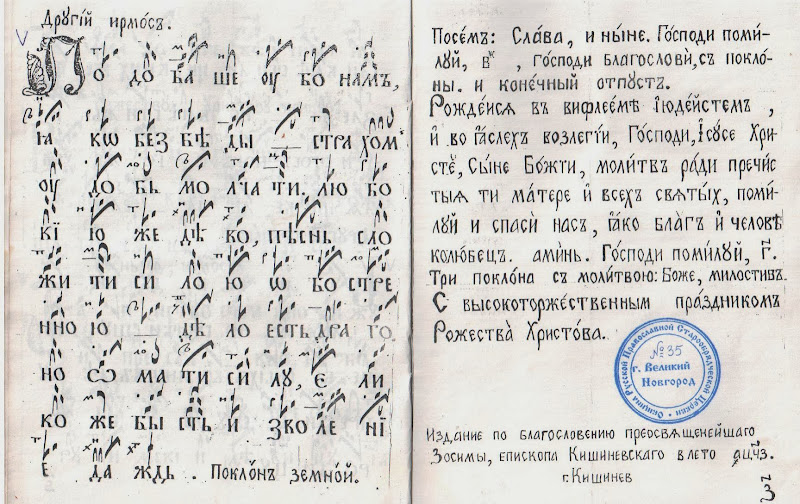 Другі́й ирмо́съ.
По до ба ше оу бо намъ,
ꙗ ко без бѣ ды стра хом
оу до бь мо лча ти. лю бо
вїю же дѣ во, пѣснь сло
жи ти си ло ю во стре
нно ю дѣ ло есть дра го
но ѡ ма ти си лу, є ли
ко же бы сть и зво ле нї
е да ждь. Покло́нъ земно́й.
Посе́мъ: Сла́ва, и ны́не. Го́споди поми́-
луй, в҃ , го́споди благослови́, съ покло́-
ны. и коне́чный отпу́стъ.
Рожде́йся въ вифлее́мѣ їюде́йстемъ,
и҆ во ꙗ́слехъ возлегі́и, Го́споди, Ісу́се Хри-
сте́, Сы́не Бо́жїи, моли́твъ ра́ди пречи́с
тыя ти ма́тере и҆ всехъ святы́хъ, поми́-
луй и҆ спаси́ насъ, ꙗ́ко бла́гъ и҆ человѣ
колю́бецъ. ами́нь. Го́споди поми́луй, г҃.
Три покло́на съ моли́твою: Боже, милостивъ.
С высокоторже́ственным пра́здникомъ
Рожества̀ Христо́ва.
Община Русской Православной Старообрядческой Церкви
№ 35
г. Великий
Новгород
Изда́ние по благословению преосвяще́нейшаго
Зосимы, епископа Кишиневскаго в лето
г. Кишинев